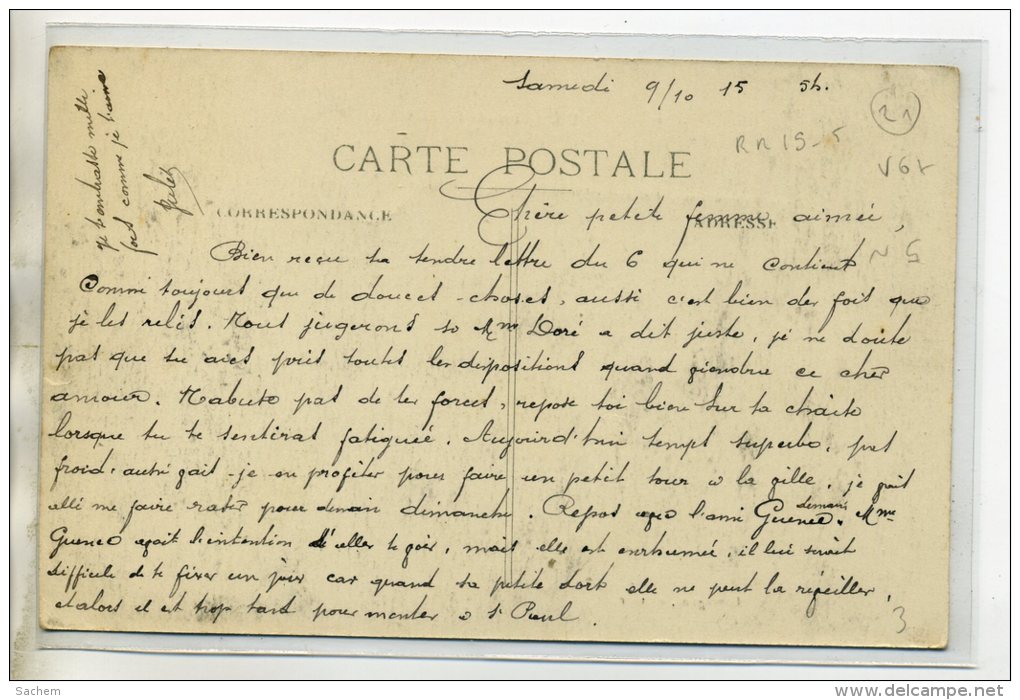 Samedi 9/10 15 5h.
21
RR 15-5
V6x
CARTE POSTALE
CORRESPONDANCE
ADRESSE
Je t'embrasse mille
fois comme je t'aime
Chère petite femme aimée,
N 5
Bien reçu ta tendre lettre du 6 qui ne contient
comme toujours que de douces choses, aussi c'est bien des fois que
je les relis. Nous jugerons si Mme Doré a dit juste, je ne doute
pas que tu aies pris toutes les dispositions quand viendra ce cher
amour. N'abuse pas de tes forces, repose toi bien sur ta chaise
lorsque tu te sentiras fatiguée. Aujourd'hui temps superbe, pas
froid, aussi vais-je en profiter pour faire un petit tour à la ville, je vais
allé me faire raser pour demain dimanche. Repos avec l'ami Guenec demain. Mme
Guenec avait l'intention d'aller te voir, mais elle est enrhumée, il lui serait
difficile de te fixer un jour car quand sa petite dort elle ne peut la réveiller,
et alors il est trop tard pour monter à St Paul.
3
Sachem
http://www.delcampe.net